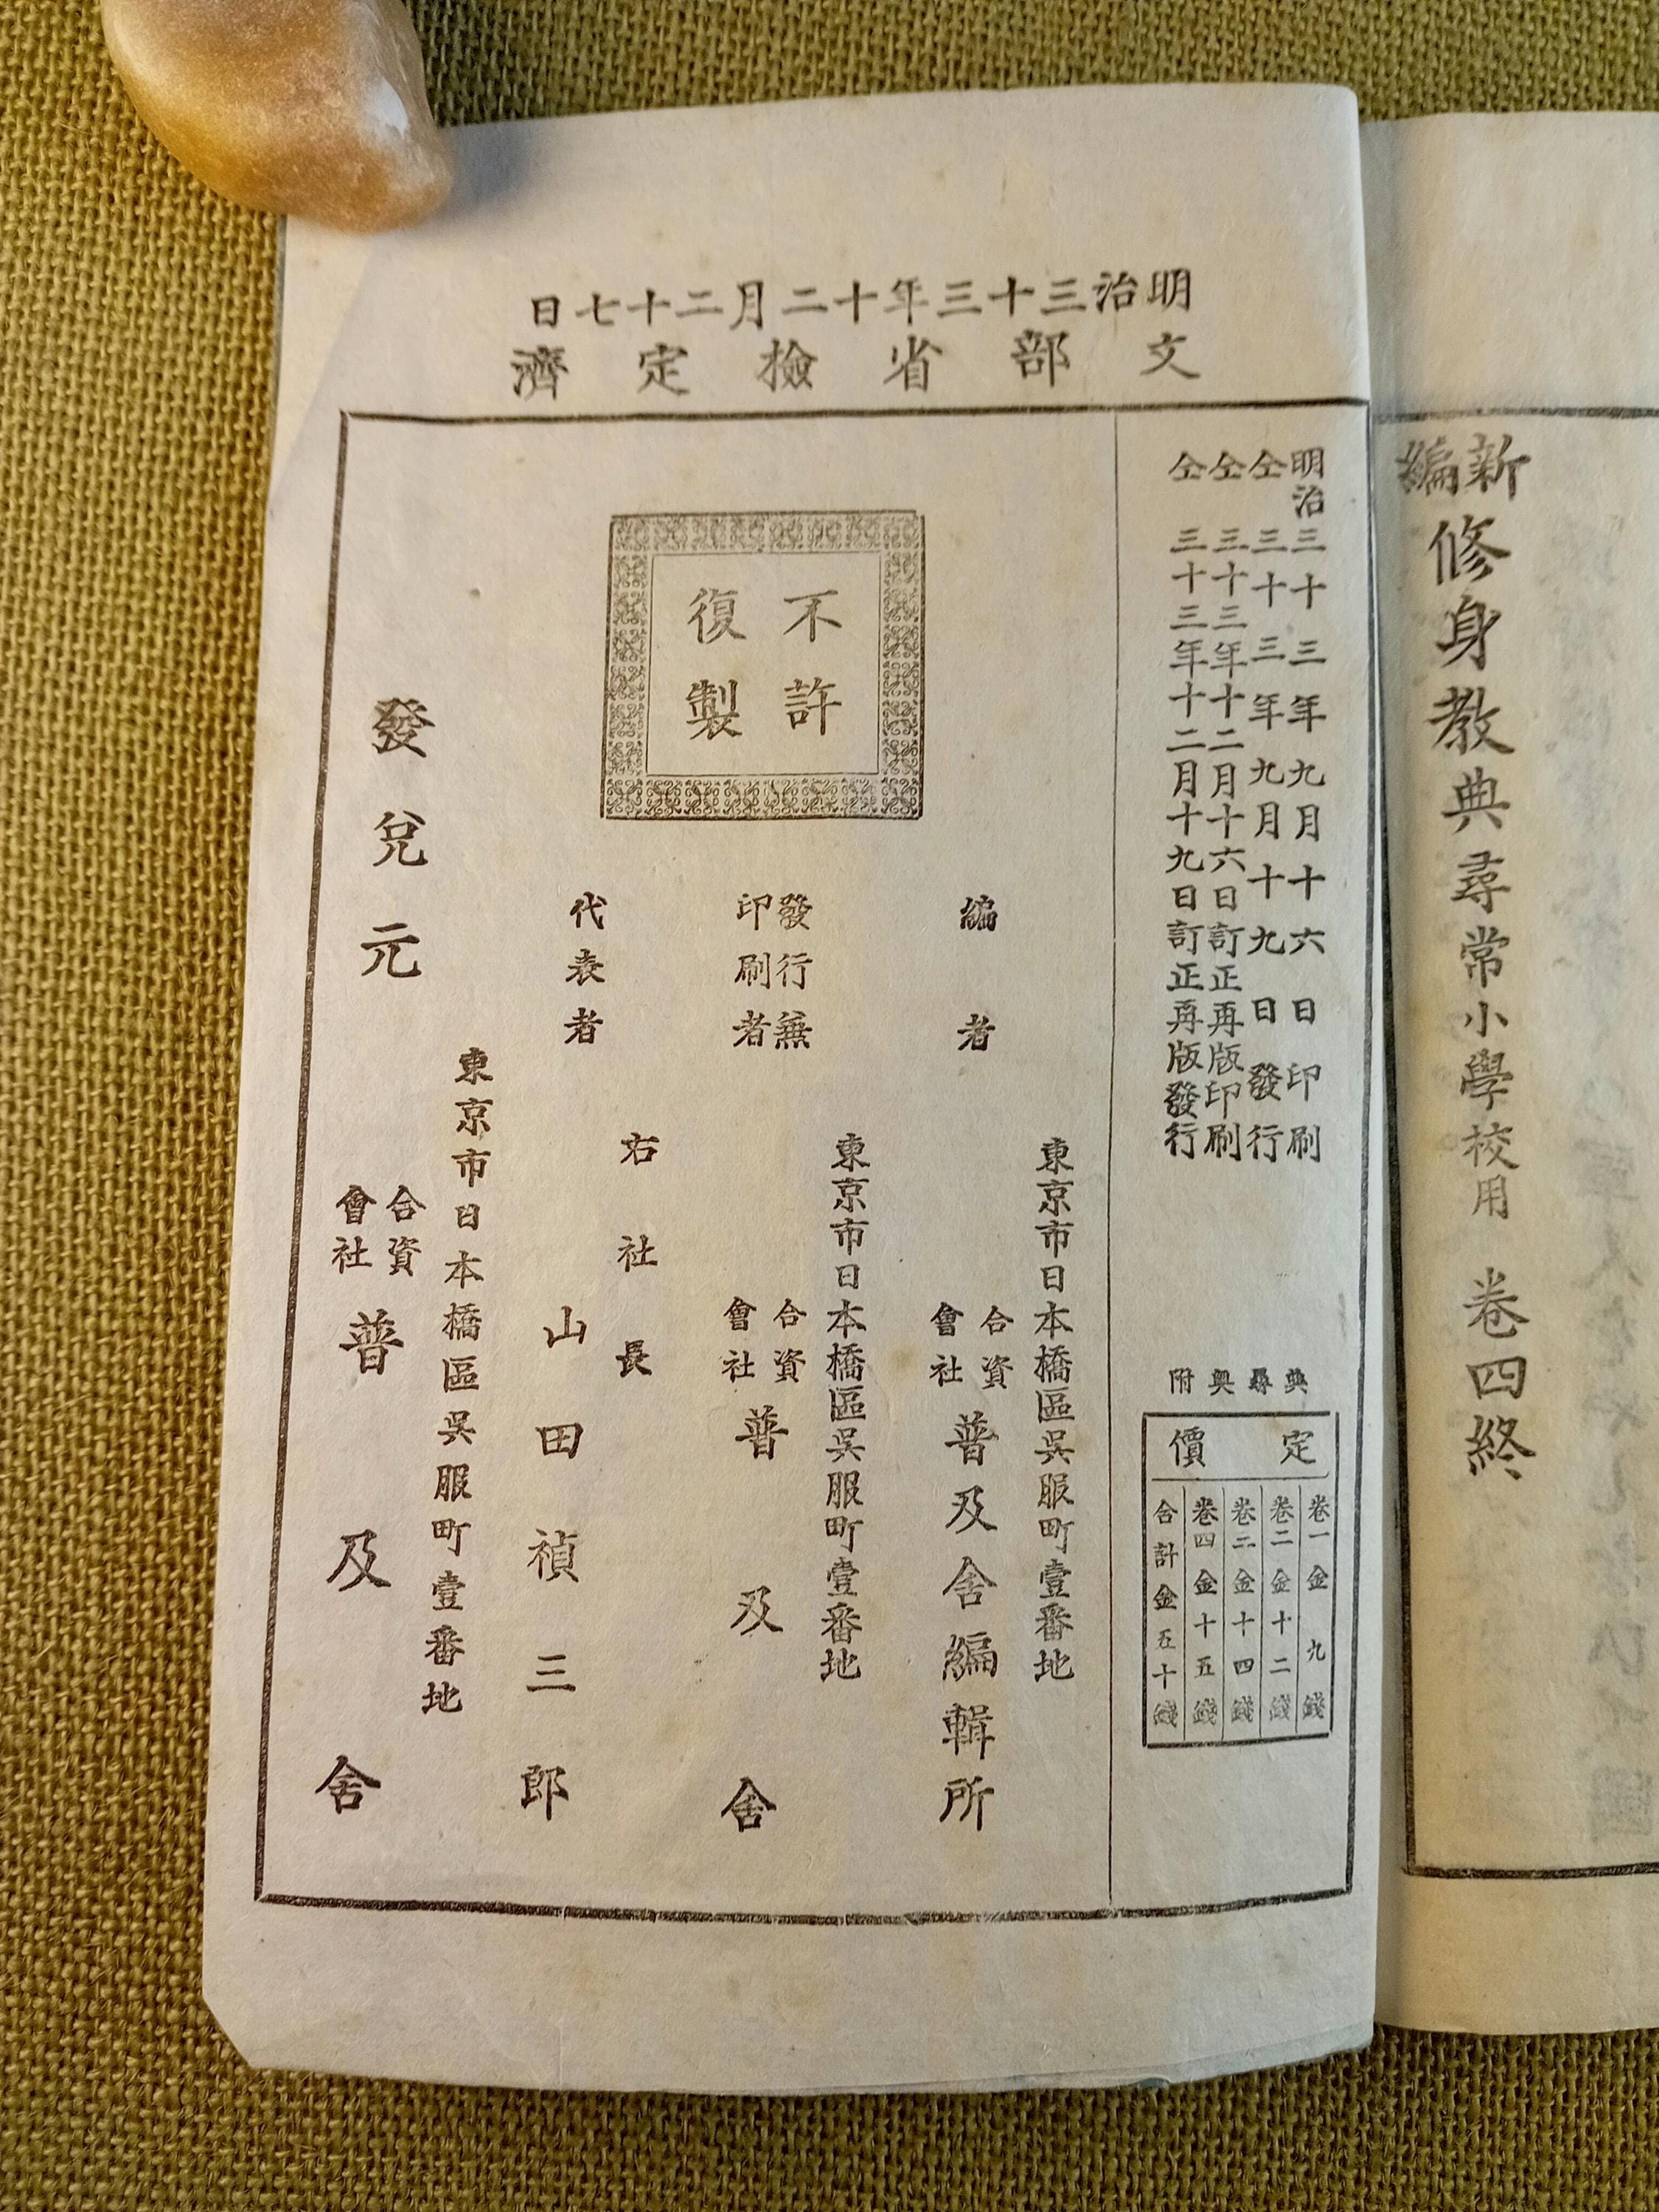 新編修身教典尋常小學校用 卷四終
明治三十三年十二月二十七日
文部省檢定濟
明治三十三年九月十六日印刷
仝三十三年九月十九日發行
仝三十三年十二月十六日訂正再版印刷
仝三十三年十二月十九日訂正再版發行
典尋奧附
定價
卷一金九錢
卷二金十二錢
卷三金十四錢
卷四金十五錢
合計金五十錢
不許
復製
東京市日本橋區吳服町壹番地
編者 合資會社 普及舍編輯所
東京市日本橋區吳服町壹番地
發行兼印刷者 合資會社 普及舍
右社長
代表者 山田禎三郎
東京市日本橋區吳服町壹番地
發兌元 合資會社 普及舍